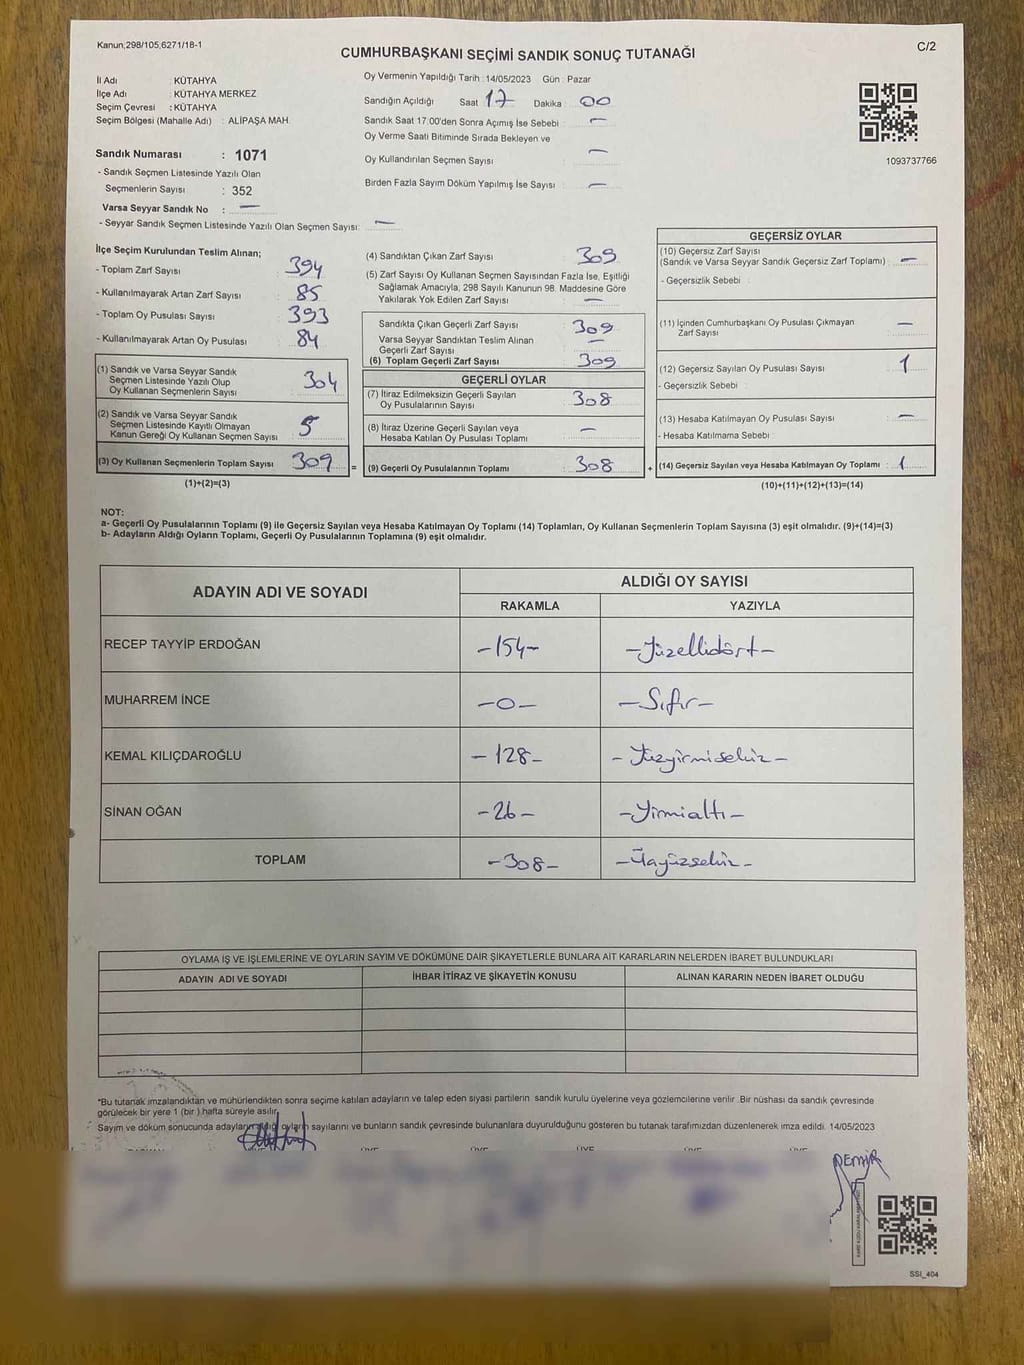 Kanun;298/105,6271/18-1
C/2
CUMHURBAŞKANI SEÇİMİ SANDIK SONUÇ TUTANAĞI
İl Adı : KÜTAHYA
İlçe Adı : KÜTAHYA MERKEZ
Seçim Çevresi : KÜTAHYA
Seçim Bölgesi (Mahalle Adı) : ALİPAŞA MAH.
Sandık Numarası : 1071
- Sandık Seçmen Listesinde Yazılı Olan
Seçmenlerin Sayısı : 352
Varsa Seyyar Sandık No : —
- Seyyar Sandık Seçmen Listesinde Yazılı Olan Seçmen Sayısı: —
Oy Vermenin Yapıldığı Tarih : 14/05/2023 Gün : Pazar
Sandığın Açıldığı Saat 17 Dakika : 00
Sandık Saat 17.00'den Sonra Açımış İse Sebebi : —
Oy Verme Saati Bitiminde Sırada Bekleyen ve
Oy Kullandırılan Seçmen Sayısı : —
Birden Fazla Sayım Döküm Yapılmış İse Sayısı : —
1093737766
İlçe Seçim Kurulundan Teslim Alınan;
- Toplam Zarf Sayısı : 394
- Kullanılmayarak Artan Zarf Sayısı : 85
- Toplam Oy Pusulası Sayısı : 393
- Kullanılmayarak Artan Oy Pusulası : 84
(1) Sandık ve Varsa Seyyar Sandık
Seçmen Listesinde Yazılı Olup
Oy Kullanan Seçmenlerin Sayısı : 304
(2) Sandık ve Varsa Seyyar Sandık
Seçmen Listesinde Kayıtlı Olmayan
Kanun Gereği Oy Kullanan Seçmen Sayısı : 5
(3) Oy Kullanan Seçmenlerin Toplam Sayısı : 309
(1)+(2)=(3)
(4) Sandıktan Çıkan Zarf Sayısı : 309
(5) Zarf Sayısı Oy Kullanan Seçmen Sayısından Fazla İse, Eşitliği
Sağlamak Amacıyla, 298 Sayılı Kanunun 98. Maddesine Göre
Yakılarak Yok Edilen Zarf Sayısı : —
Sandıkta Çıkan Geçerli Zarf Sayısı : 309
Varsa Seyyar Sandıktan Teslim Alınan
Geçerli Zarf Sayısı : —
(6) Toplam Geçerli Zarf Sayısı : 309
GEÇERLİ OYLAR
(7) İtiraz Edilmeksizin Geçerli Sayılan
Oy Pusulalarının Sayısı : 308
(8) İtiraz Üzerine Geçerli Sayılan veya
Hesaba Katılan Oy Pusulası Toplamı : —
= (9) Geçerli Oy Pusulalarının Toplamı : 308
GEÇERSİZ OYLAR
(10) Geçersiz Zarf Sayısı
(Sandık ve Varsa Seyyar Sandık Geçersiz Zarf Toplamı) : —
- Geçersizlik Sebebi :
(11) İçinden Cumhurbaşkanı Oy Pusulası Çıkmayan
Zarf Sayısı : —
(12) Geçersiz Sayılan Oy Pusulası Sayısı : 1
- Geçersizlik Sebebi :
(13) Hesaba Katılmayan Oy Pusulası Sayısı : —
- Hesaba Katılmama Sebebi :
+ (14) Geçersiz Sayılan veya Hesaba Katılmayan Oy Toplamı : 1
(10)+(11)+(12)+(13)=(14)
NOT:
a- Geçerli Oy Pusulalarının Toplamı (9) ile Geçersiz Sayılan veya Hesaba Katılmayan Oy Toplamı (14) Toplamları, Oy Kullanan Seçmenlerin Toplam Sayısına (3) eşit olmalıdır. (9)+(14)=(3)
b- Adayların Aldığı Oyların Toplamı, Geçerli Oy Pusulalarının Toplamına (9) eşit olmalıdır.
ADAYIN ADI VE SOYADI
ALDIĞI OY SAYISI
RAKAMLA YAZIYLA
RECEP TAYYİP ERDOĞAN -154- -Yüzellidört-
MUHARREM İNCE -0- -Sıfır-
KEMAL KILIÇDAROĞLU -128- -Yüzyirmisekiz-
SİNAN OĞAN -26- -Yirmialtı-
TOPLAM -308- -Üçyüzsekiz-
OYLAMA İŞ VE İŞLEMLERİNE VE OYLARIN SAYIM VE DÖKÜMÜNE DAİR ŞİKAYETLERLE BUNLARA AİT KARARLARIN NELERDEN İBARET BULUNDUKLARI
ADAYIN ADI VE SOYADI İHBAR İTİRAZ VE ŞİKAYETİN KONUSU ALINAN KARARIN NEDEN İBARET OLDUĞU
*Bu tutanak imzalandıktan ve mühürlendikten sonra seçime katılan adayların ve talep eden siyasi partilerin sandık kurulu üyelerine veya gözlemcilerine verilir .Bir nüshası da sandık çevresinde
görülecek bir yere 1 (bir ) hafta süreyle asılır.
Sayım ve döküm sonucunda adayların aldığı oyların sayılarını ve bunların sandık çevresinde bulunanlara duyurulduğunu gösteren bu tutanak tarafımızdan düzenlenerek imza edildi. 14/05/2023
ÜYE ÜYE ÜYE ÜYE ÜYE
DEMİR
SSI_404